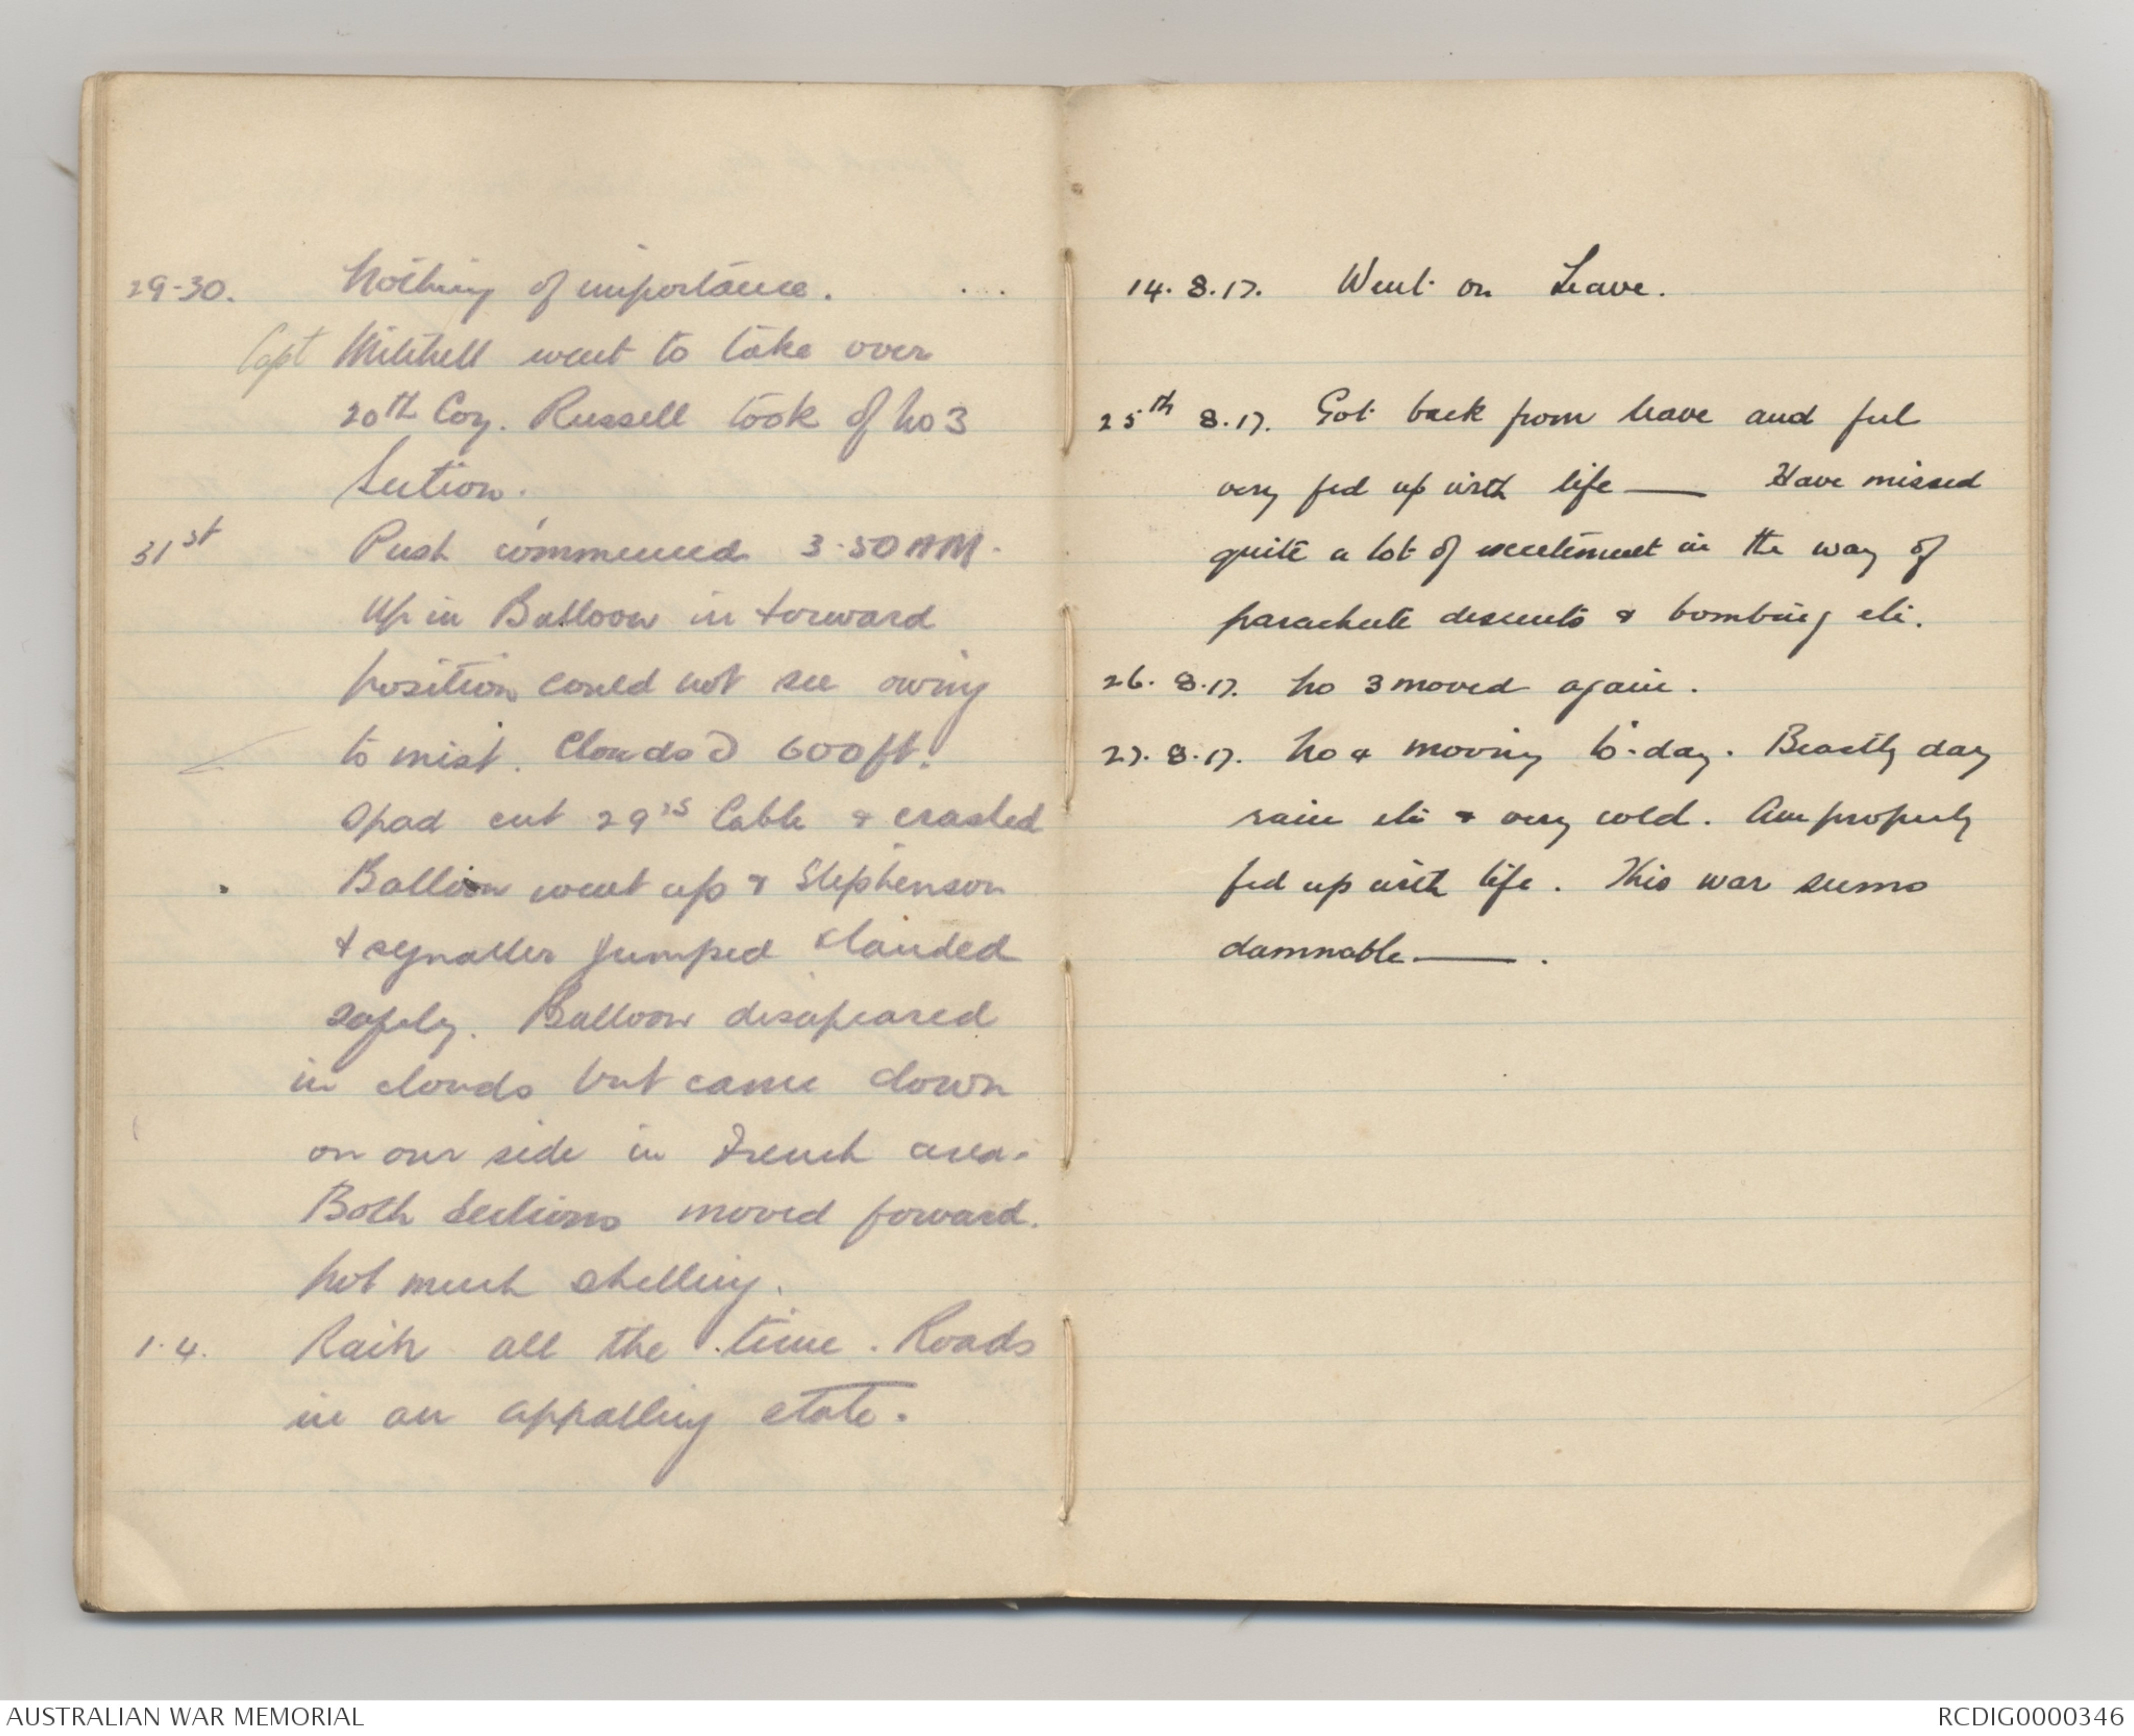 29-30. Nothing of importance. ...
Capt Mitchell went to take over
20th Coy. Russell took of No 3
Section.
31st Push commenced 3.50 AM.
Up in Balloon in forward
position could not see owing
to mist. Clouds @ 600ft.
Spad cut 29's Cable & crashed
Balloon went up & Stephenson
& signaller jumped & landed
safely. Balloon disapeared
in clouds but came down
on our side in French area.
Both Sections moved forward.
Not much shelling.
1.4. Rain all the time. Roads
in an appalling state.
14.8.17. Went on Leave.
25th 8.17. Got back from leave and feel
very fed up with life — Have missed
quite a lot of excitement in the way of
parachute descents & bombing etc.
26.8.17. No 3 moved again.
27.8.17. No 4 moving to-day. Beastly day
rain etc & very cold. Am properly
fed up with life. This war seems
damnable —.
AUSTRALIAN WAR MEMORIAL
RCDIG0000346